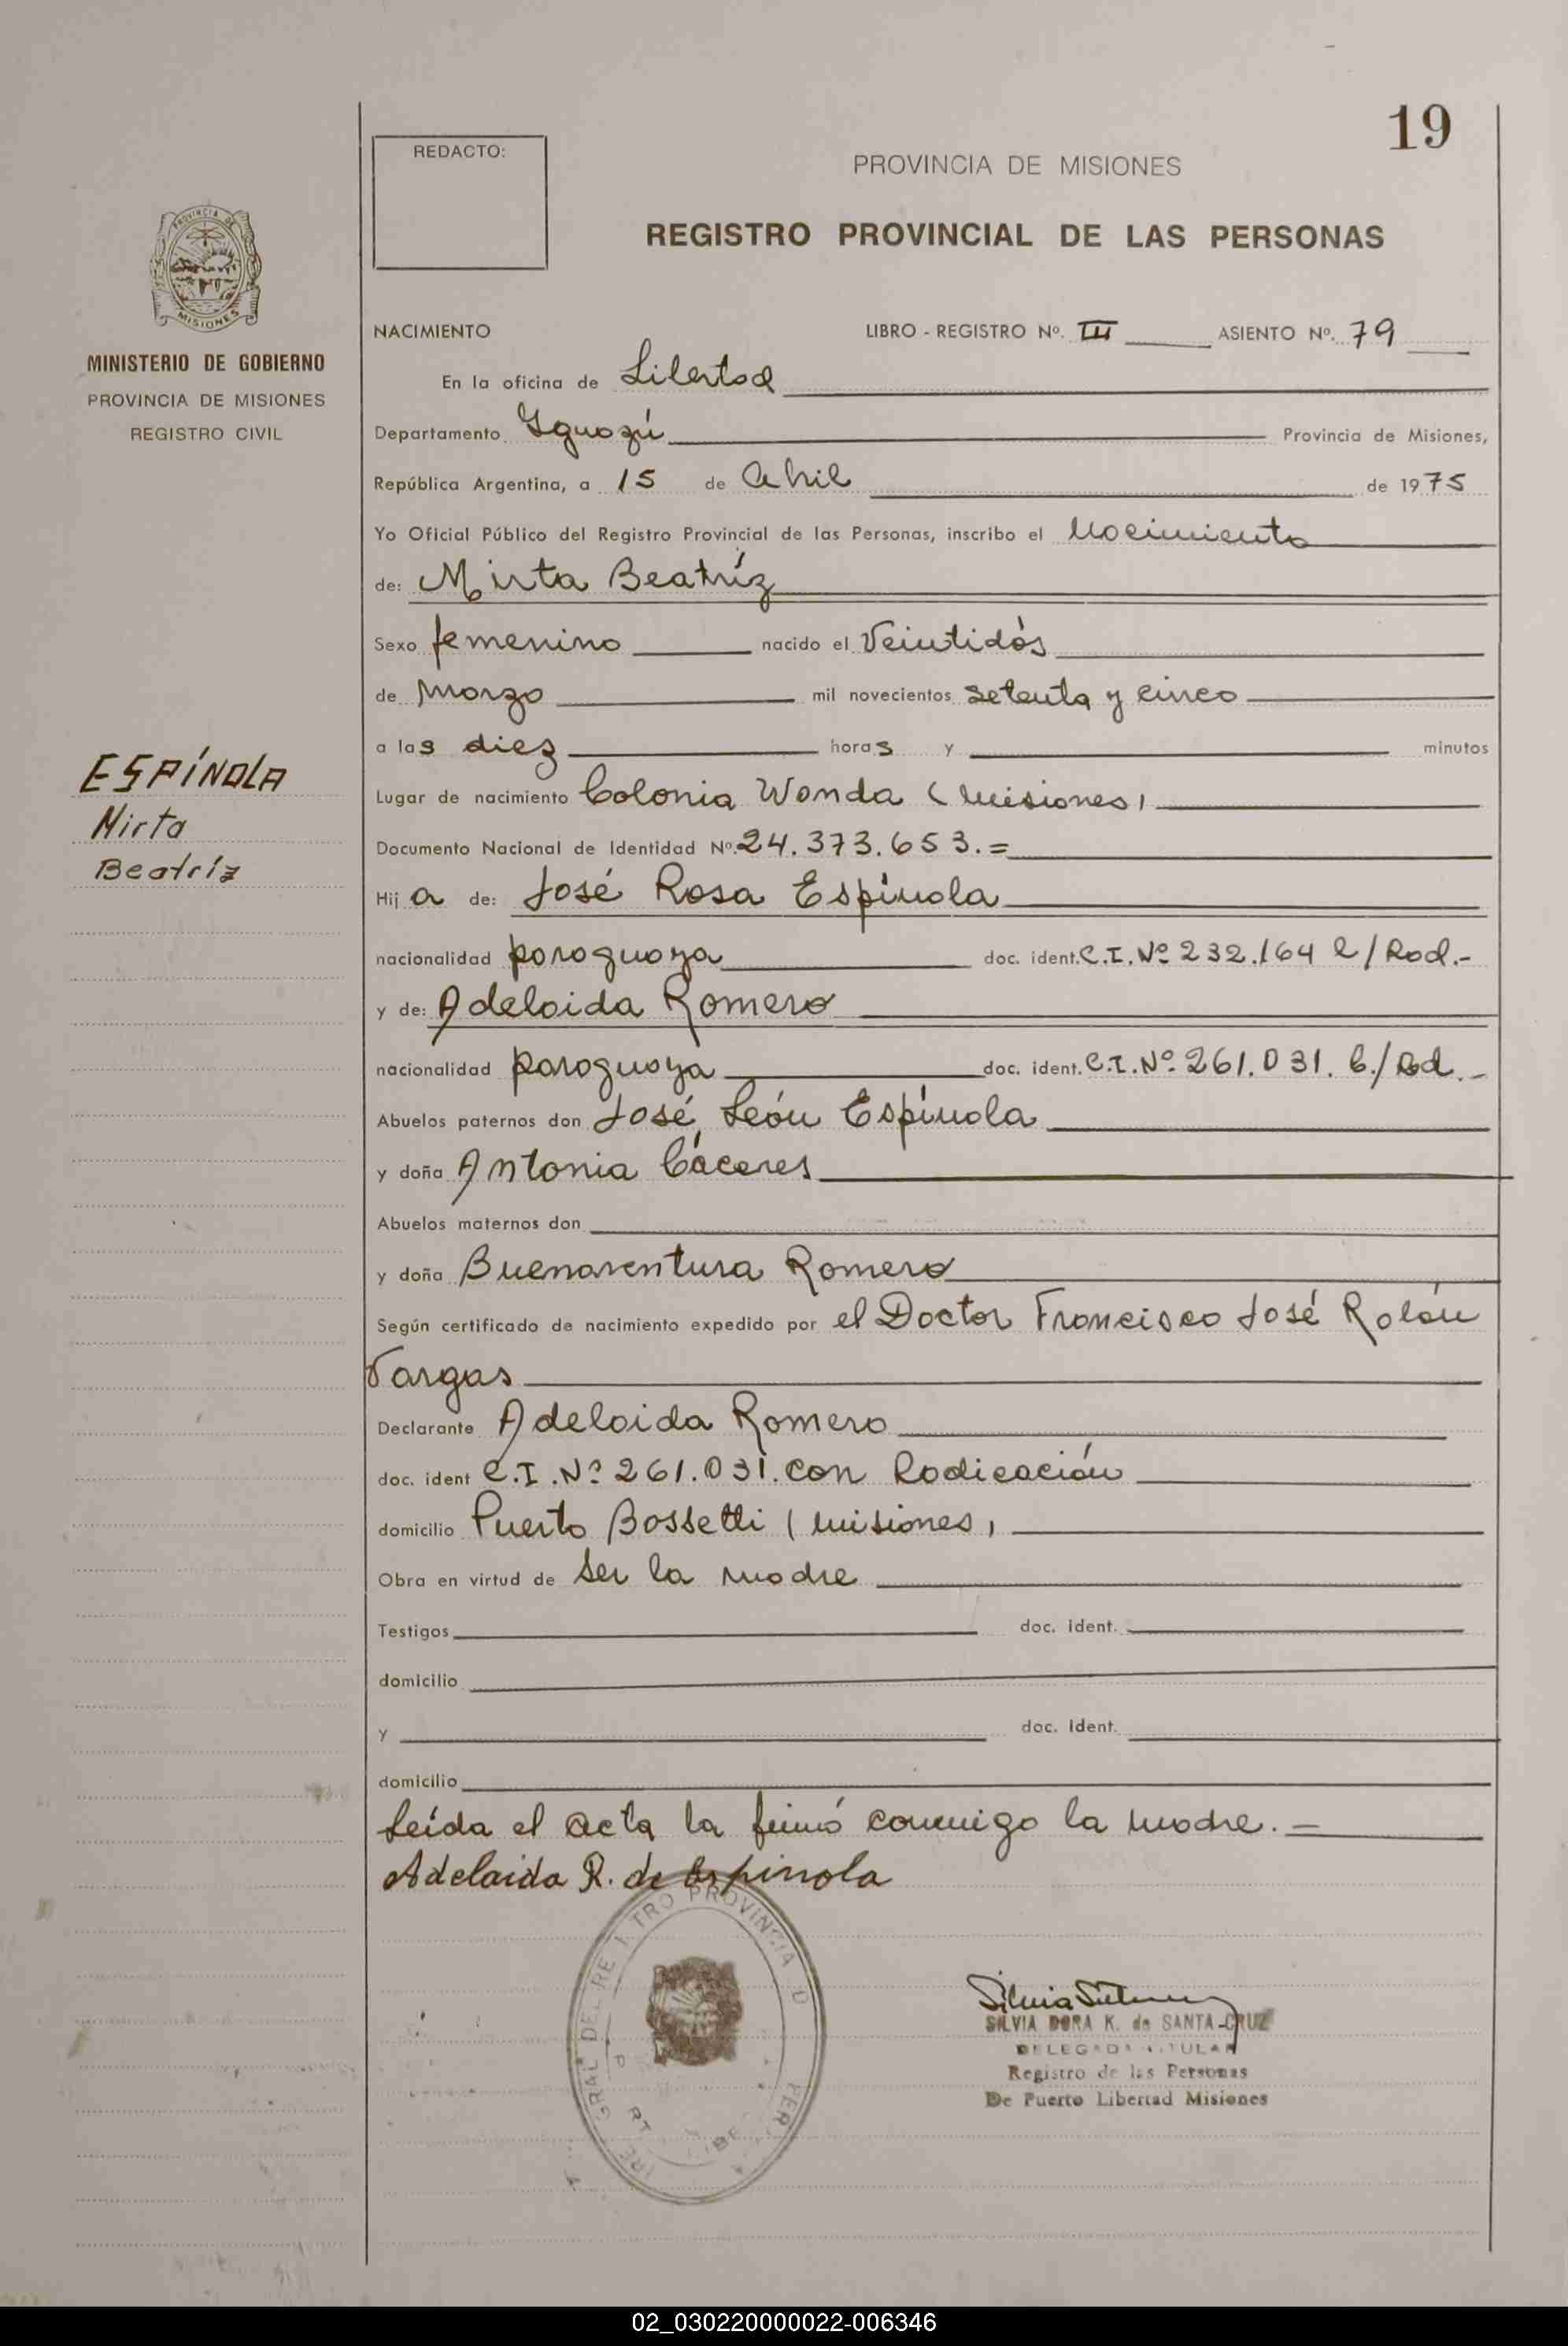 19
REDACTO:
PROVINCIA DE MISIONES
REGISTRO PROVINCIAL DE LAS PERSONAS
PROVINCIA DE
MISIONES
MINISTERIO DE GOBIERNO
PROVINCIA DE MISIONES
REGISTRO CIVIL
ESPÍNOLA
Mirta
Beatríz
NACIMIENTO LIBRO - REGISTRO Nº. III ASIENTO Nº. 79
En la oficina de Libertad
Departamento Iguazú Provincia de Misiones,
República Argentina, a 15 de Abril de 1975
Yo Oficial Público del Registro Provincial de las Personas, inscribo el Nacimiento
de: Mirta Beatríz
Sexo femenino nacido el Veintidós
de Marzo mil novecientos setenta y cinco
a las diez horas y minutos
Lugar de nacimiento Colonia Wanda (Misiones)
Documento Nacional de Identidad Nº. 24.373.653.=
Hija de: José Rosa Espínola
nacionalidad paraguaya doc. ident. C.I. Nº 232.164 C/Rad.-
y de: Adelaida Romero
nacionalidad paraguaya doc. ident. C.I. Nº 261.031. C./Rad.-
Abuelos paternos don José León Espínola
y doña Antonia Cáceres
Abuelos maternos don
y doña Buenaventura Romero
Según certificado de nacimiento expedido por el Doctor Francisco José Rolón
Vargas
Declarante Adelaida Romero
doc. ident C.I. Nº 261.031. con Radicación
domicilio Puerto Bossetti (Misiones)
Obra en virtud de ser la madre
Testigos doc. ident.
domicilio
y doc. ident.
domicilio
Leída el acta la firmó conmigo la madre. =
Adelaida R. de Espinola
SILVIA DORA K. de SANTA CRUZ
DELEGADA TITULAR
Registro de las Personas
De Puerto Libertad Misiones
02_030220000022-006346